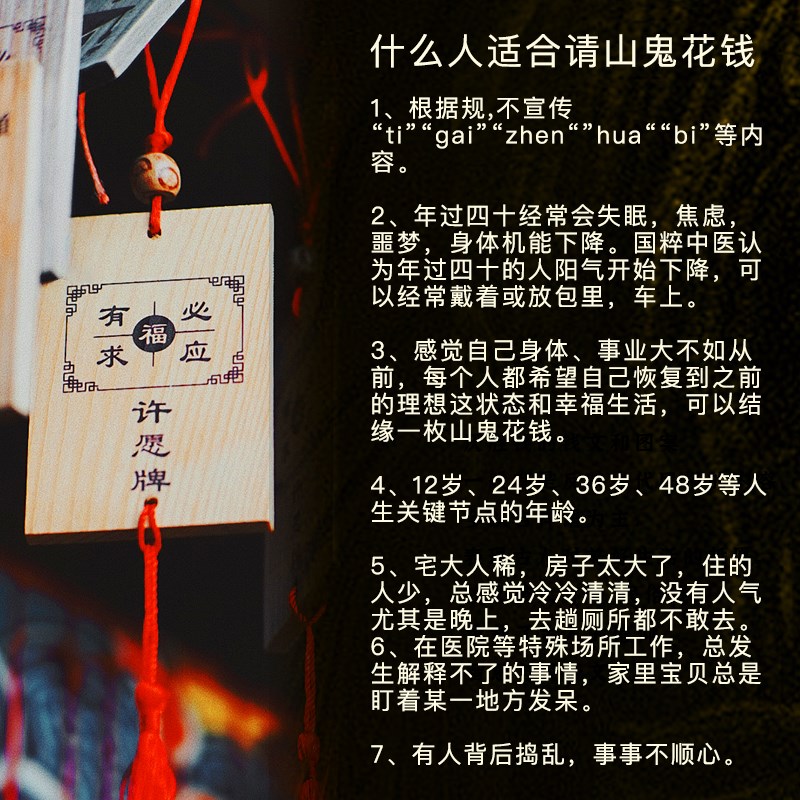 什么人适合请山鬼花钱
1、根据规,不宣传
“ti”“gai”“zhen“”hua““bi”等内
容。
2、年过四十经常会失眠，焦虑，
噩梦，身体机能下降。国粹中医认
为年过四十的人阳气开始下降，可
以经常戴着或放包里，车上。
3、感觉自己身体、事业大不如从
前，每个人都希望自己恢复到之前
的理想这状态和幸福生活，可以结
缘一枚山鬼花钱。
4、12岁、24岁、36岁、48岁等人
生关键节点的年龄。
5、宅大人稀，房子太大了，住的
人少，总感觉冷冷清清，没有人气
尤其是晚上，去趟厕所都不敢去。
6、在医院等特殊场所工作，总发
生解释不了的事情，家里宝贝总是
盯着某一地方发呆。
7、有人背后捣乱，事事不顺心。
有必
福
求应
许
愿
牌